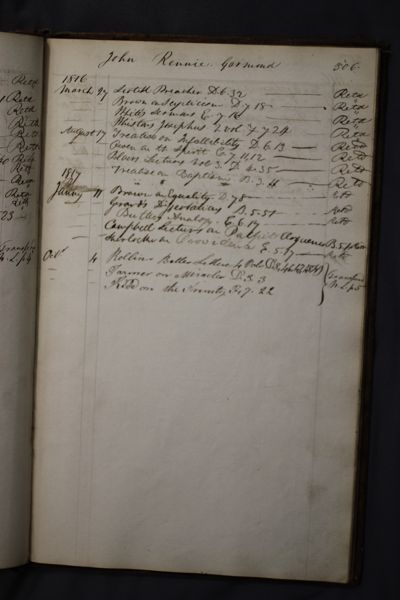 John Rennie. Garmond 306.
1816
March 27 Scotch Preacher D.6.32 Retd
Brown on Scepticism D.7.18 Retd
Whites Sermons E.7.16 Retd
Whistons Josephus 2 vol. F.7.24 Retd
August 17 Treatise on Infallibility D.6.13 Retd
Owen on the Spirit C.7.11,12 Retd
Blairs Lectures vol 3. D.4.35 Retd
Treatise on Baptism B.3.41 Retd
1817
Janury 11 Brown on Equality D.7.8 Retd
Grants B.5.51 Retd
Butlers Analogy E.6.17
Campbell Lectures on Pulpit Eloquence B.5.
Sherlock on Providence E.5.17 Retd
Octr 4 Rollins Belles Lettres 4 Vols
Farmer on Miracles D.3.3
Kidd on the Trinity F.7.22
Transferd
N L p 5
Retd
Retd
Retd
Retd
Retd